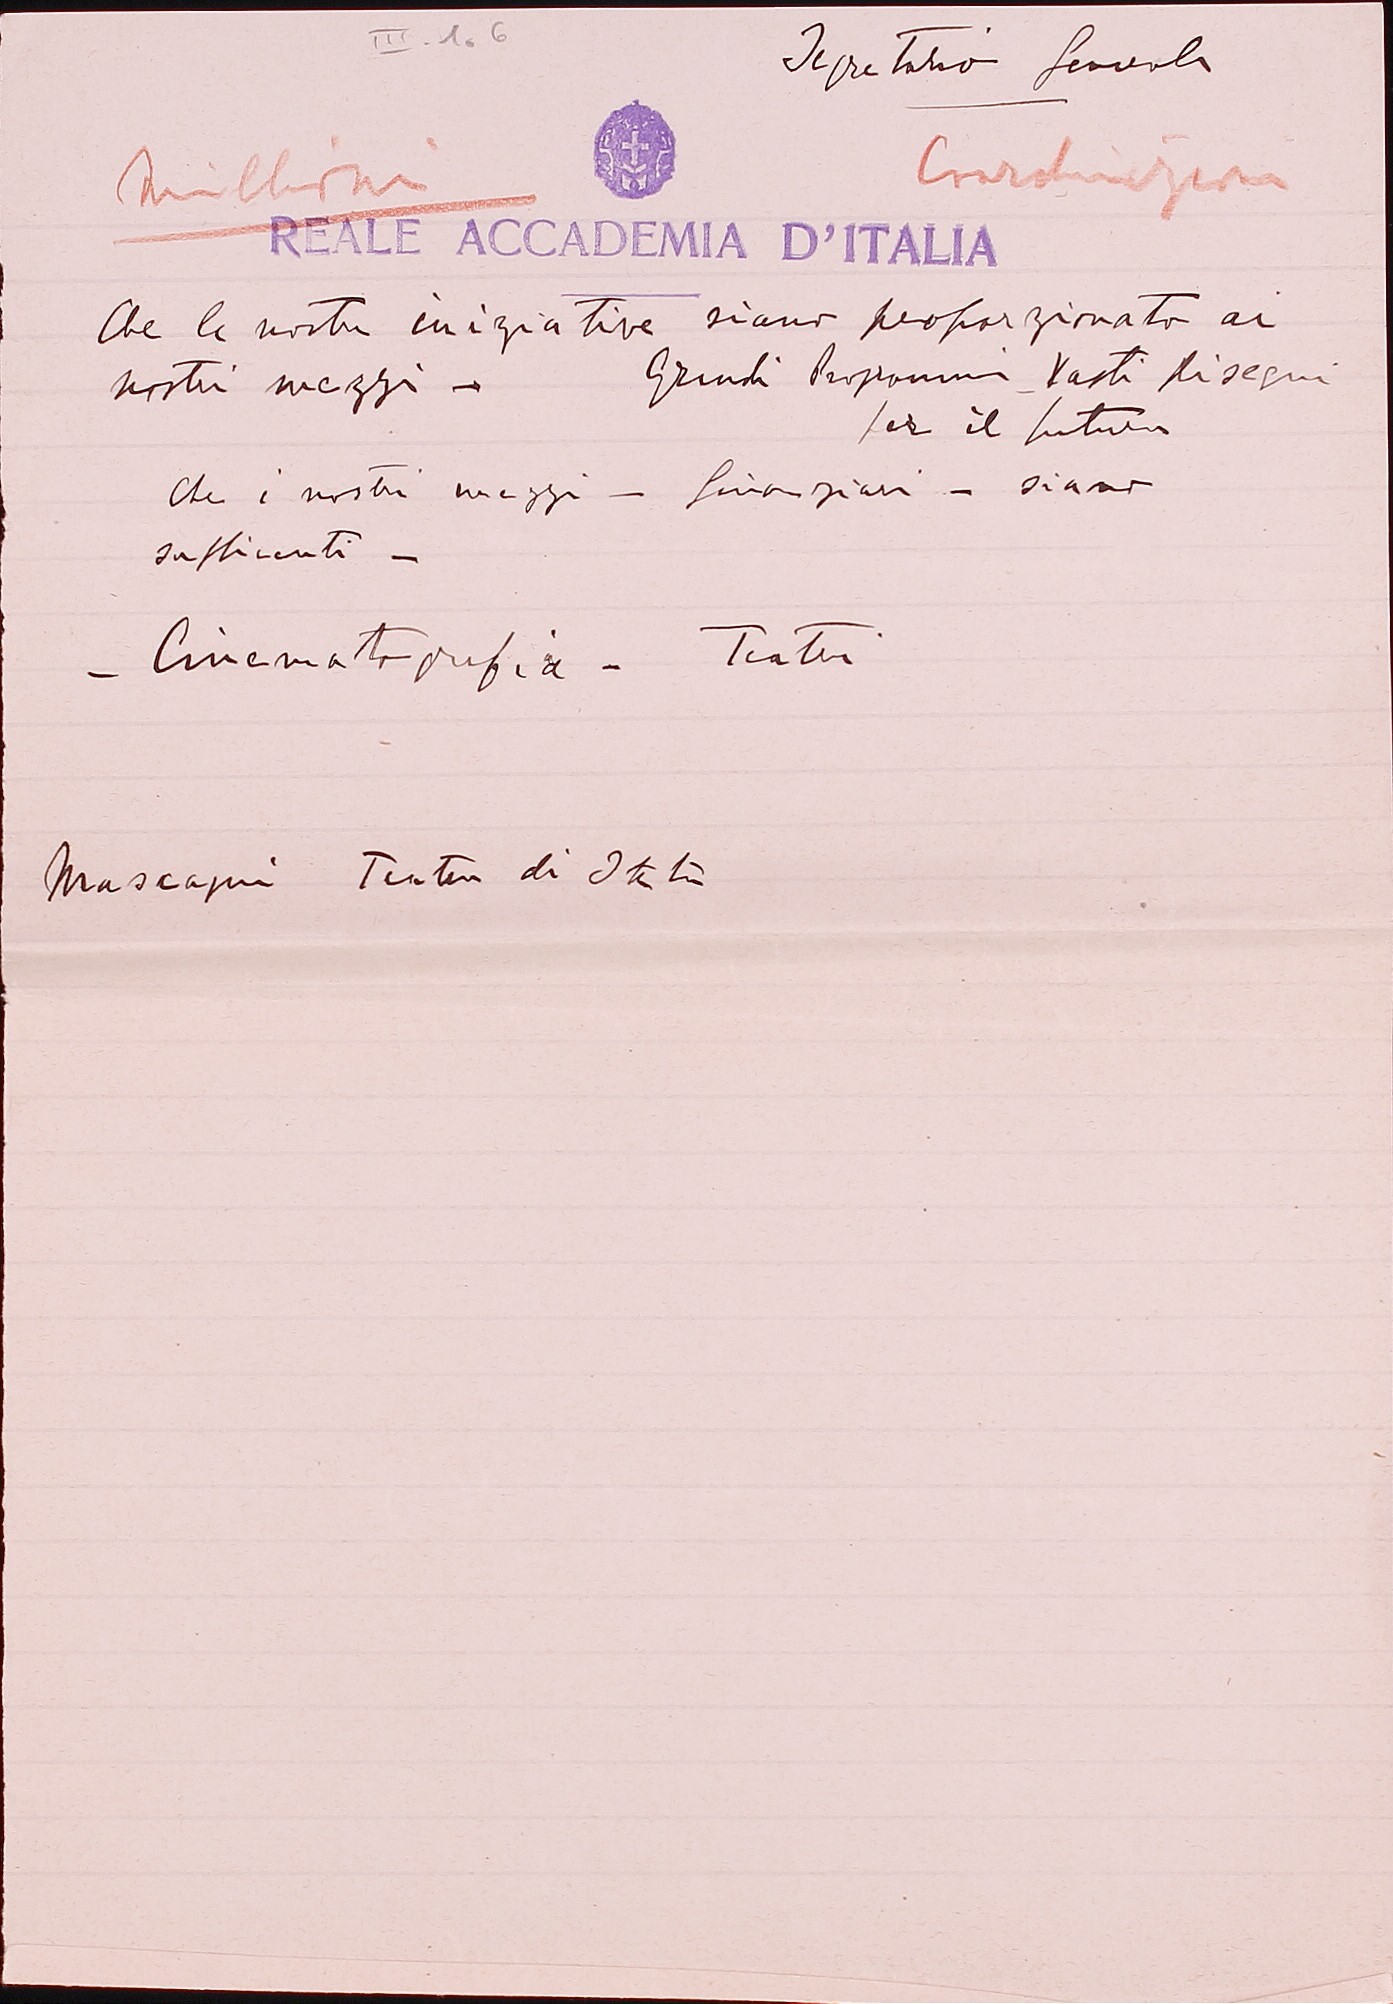 III. 1. 6
Segretario Generale
Millioni
Coordinazione
REALE ACCADEMIA D'ITALIA
Che le nostre iniziative siano proporzionate ai
nostri mezzi – Grandi Programmi – Vasti Disegni
per il futuro
Che i nostri mezzi – finanziari – siano
sufficenti –
– Cinematografia – Teatri
Mascagni Teatro di Stato